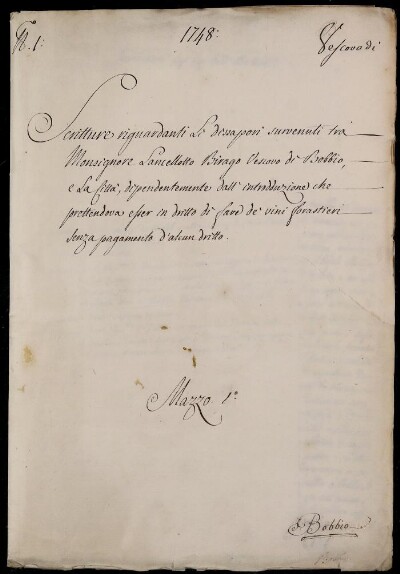 N. 1:
1748:
Vescovo di
Scritture riguardanti Li dissapori survenuti trà
Monsignore Lancellotto Birago Vescovo di Bobbio,
e La Città, dipendentemente dall' introduzione che
prettendeva esser in dritto di fare de' vini forastieri
senza pagamento d'alcun dritto.
Mazzo 1º
Bobbio